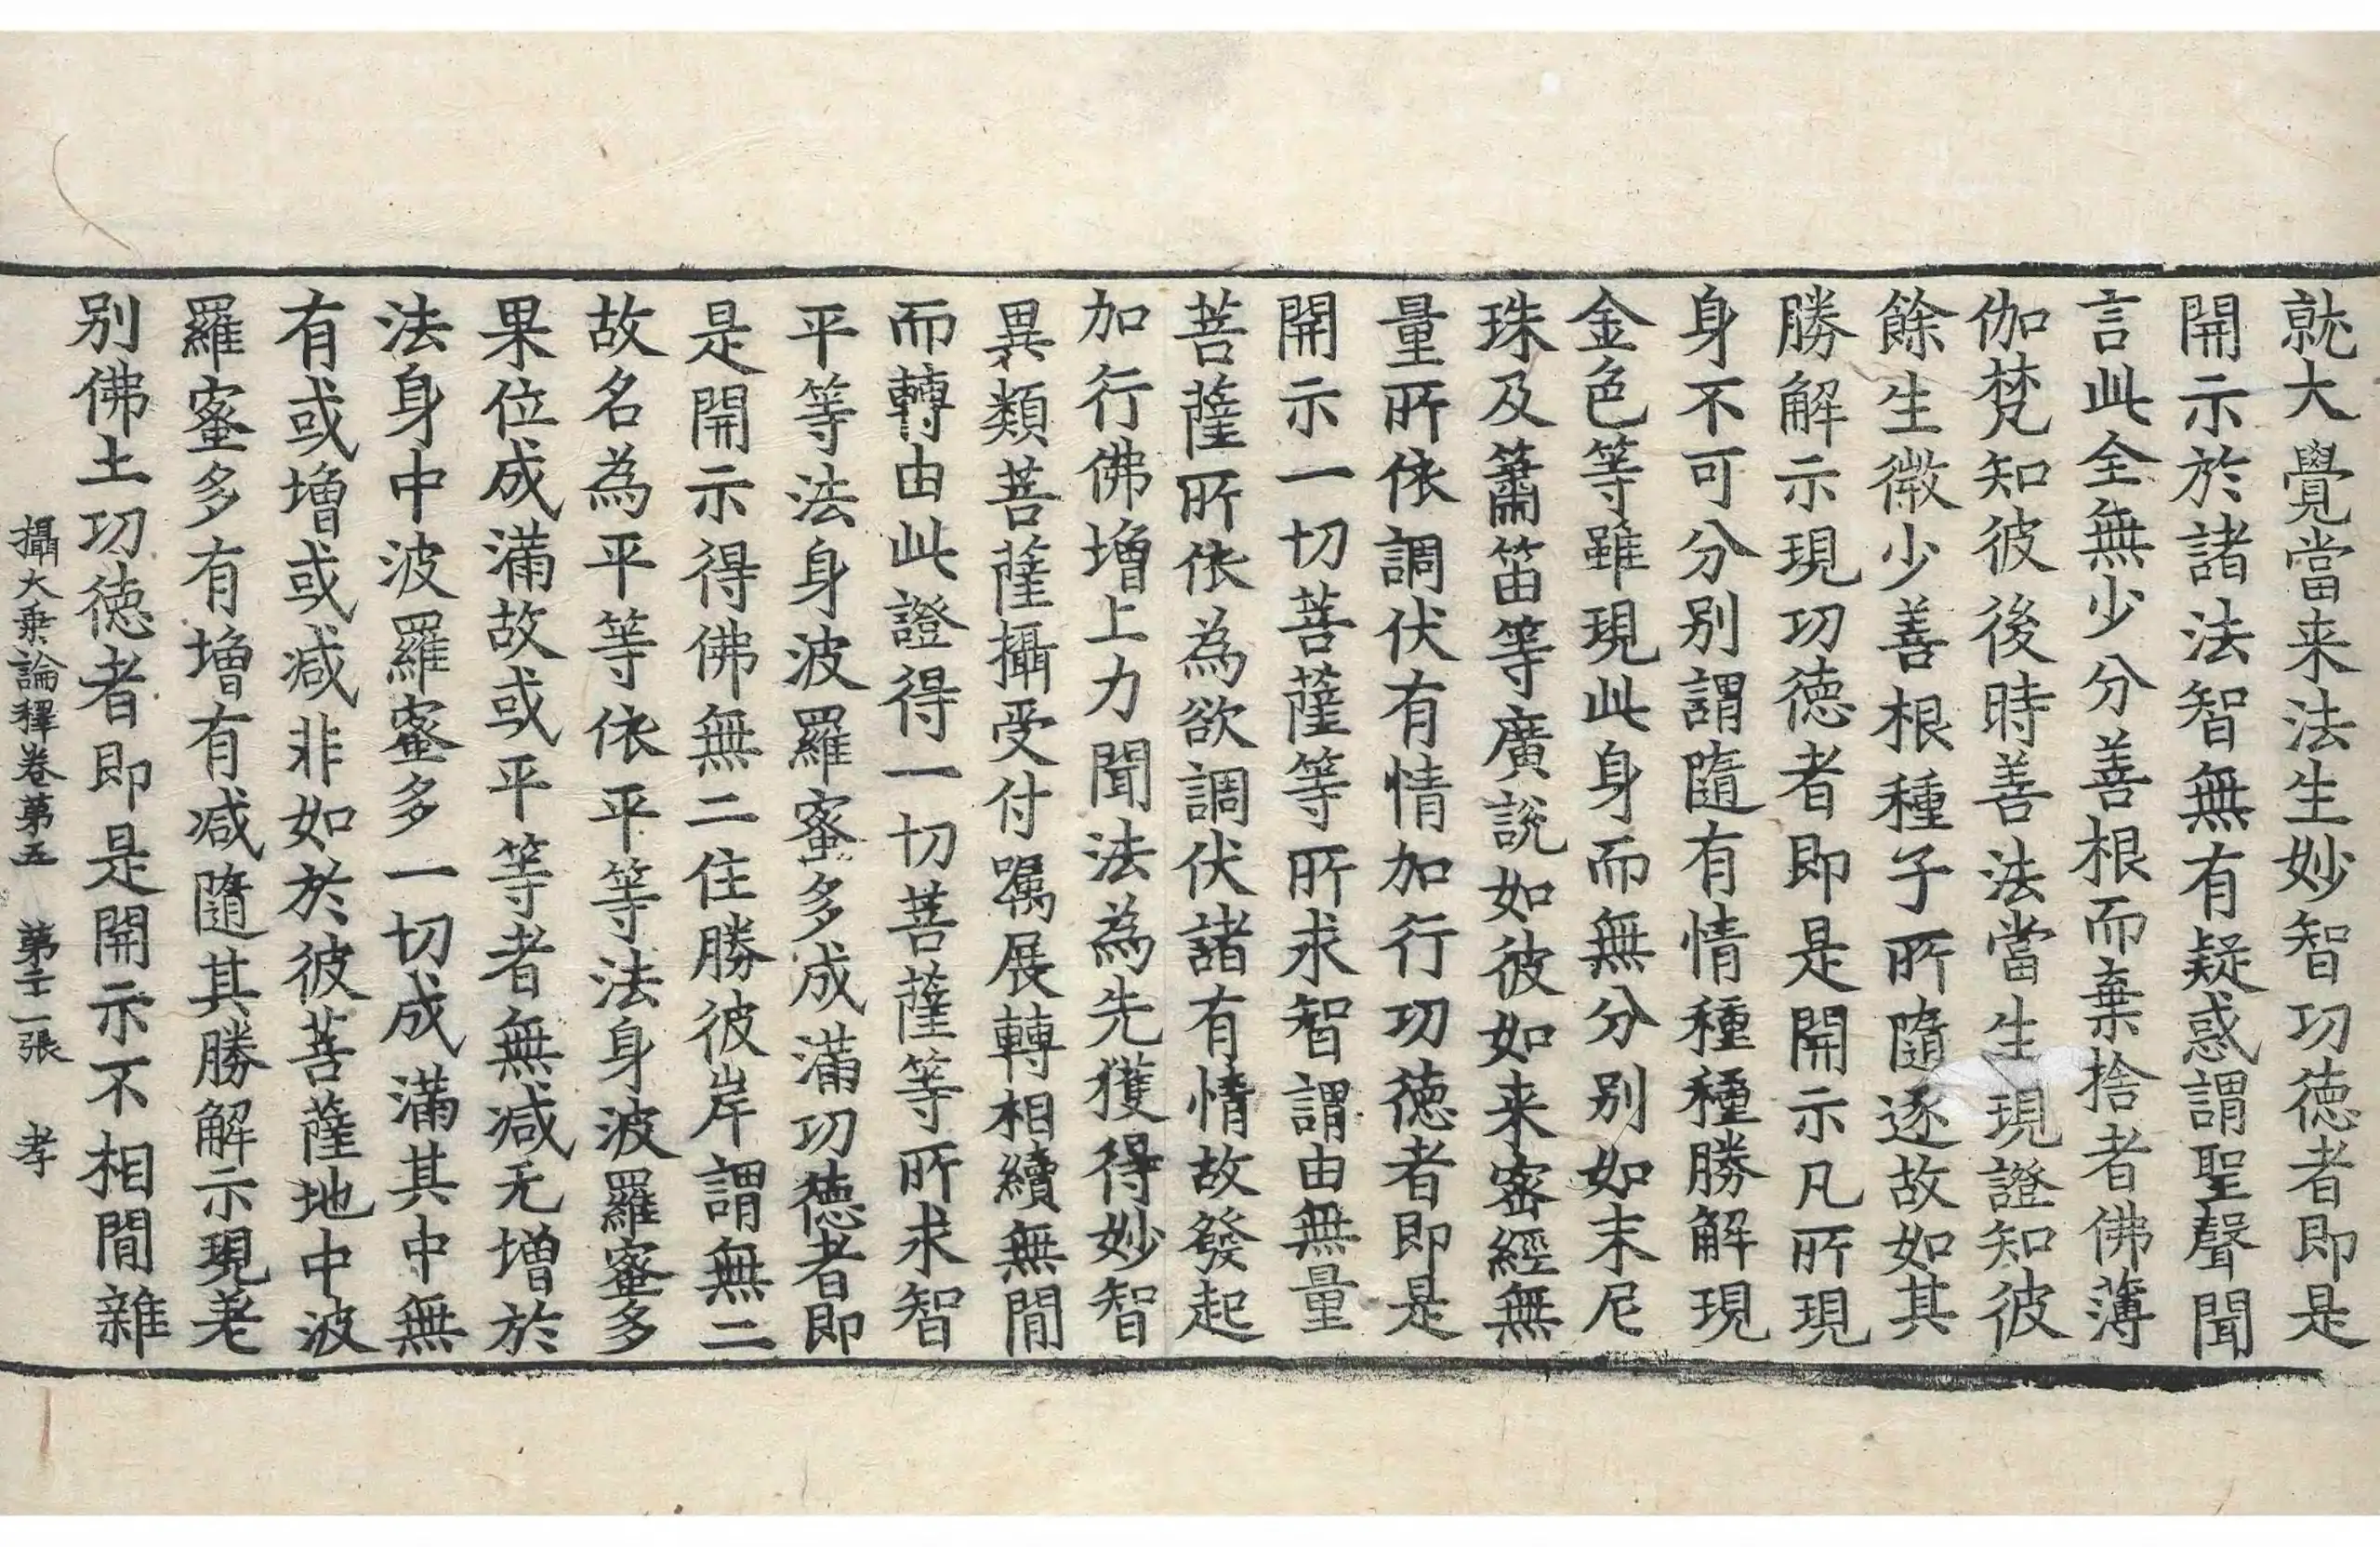 就大覺當来法生妙智功徳者即是
開示於諸法智無有疑惑謂聖聲聞
言此全無少分善根而棄捨者佛薄
伽梵知彼後時善法當生現證知彼
餘生微少善根種子所隨逐故如其
勝解示現功徳者即是開示凡所現
身不可分別謂隨有情種種勝解現
金色等雖現此身而無分別如末尼
珠及簫笛等廣說如彼如来密經無
量所依調伏有情加行功徳者即是
開示一切菩薩等所求智謂由無量
菩薩所依為欲調伏諸有情故發起
加行佛增上力聞法為先獲得妙智
異類菩薩攝受付囑展轉相續無間
而轉由此證得一切菩薩等所求智
平等法身波羅蜜多成滿功徳者即
是開示得佛無二住勝彼岸謂無二
故名為平等依平等法身波羅蜜多
果位成滿故或平等者無減无增於
法身中波羅蜜多一切成滿其中無
有或增或減非如於彼菩薩地中波
羅蜜多有增有減隨其勝解示現差
別佛土功徳者即是開示不相間雜
攝大乗論釋卷第五　第二十一張　孝